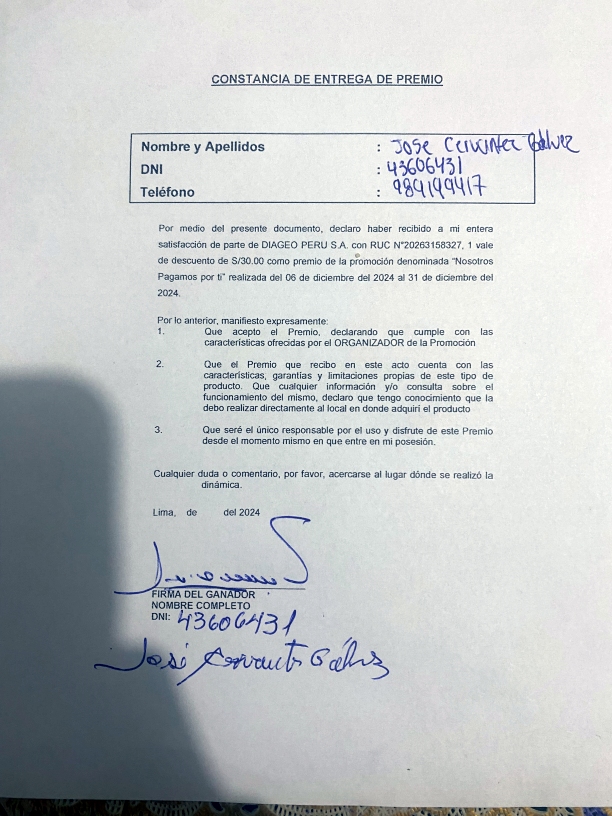 CONSTANCIA DE ENTREGA DE PREMIO
Nombre y Apellidos : JOSE Cervantes Gálvez
DNI : 43606431
Teléfono : 989199417
Por medio del presente documento, declaro haber recibido a mi entera
satisfacción de parte de DIAGEO PERU S.A. con RUC N°20263158327, 1 vale
de descuento de S/30.00 como premio de la promoción denominada “Nosotros
Pagamos por ti” realizada del 06 de diciembre del 2024 al 31 de diciembre del
2024.
Por lo anterior, manifiesto expresamente:
1. Que acepto el Premio, declarando que cumple con las
características ofrecidas por el ORGANIZADOR de la Promoción
2. Que el Premio que recibo en este acto cuenta con las
características, garantías y limitaciones propias de este tipo de
producto. Que cualquier información y/o consulta sobre el
funcionamiento del mismo, declaro que tengo conocimiento que la
debo realizar directamente al local en donde adquirí el producto
3. Que seré el único responsable por el uso y disfrute de este Premio
desde el momento mismo en que entre en mi posesión.
Cualquier duda o comentario, por favor, acercarse al lugar dónde se realizó la
dinámica.
Lima, de del 2024
FIRMA DEL GANADOR
NOMBRE COMPLETO
DNI: 43606431
José Cervantes Gálvez